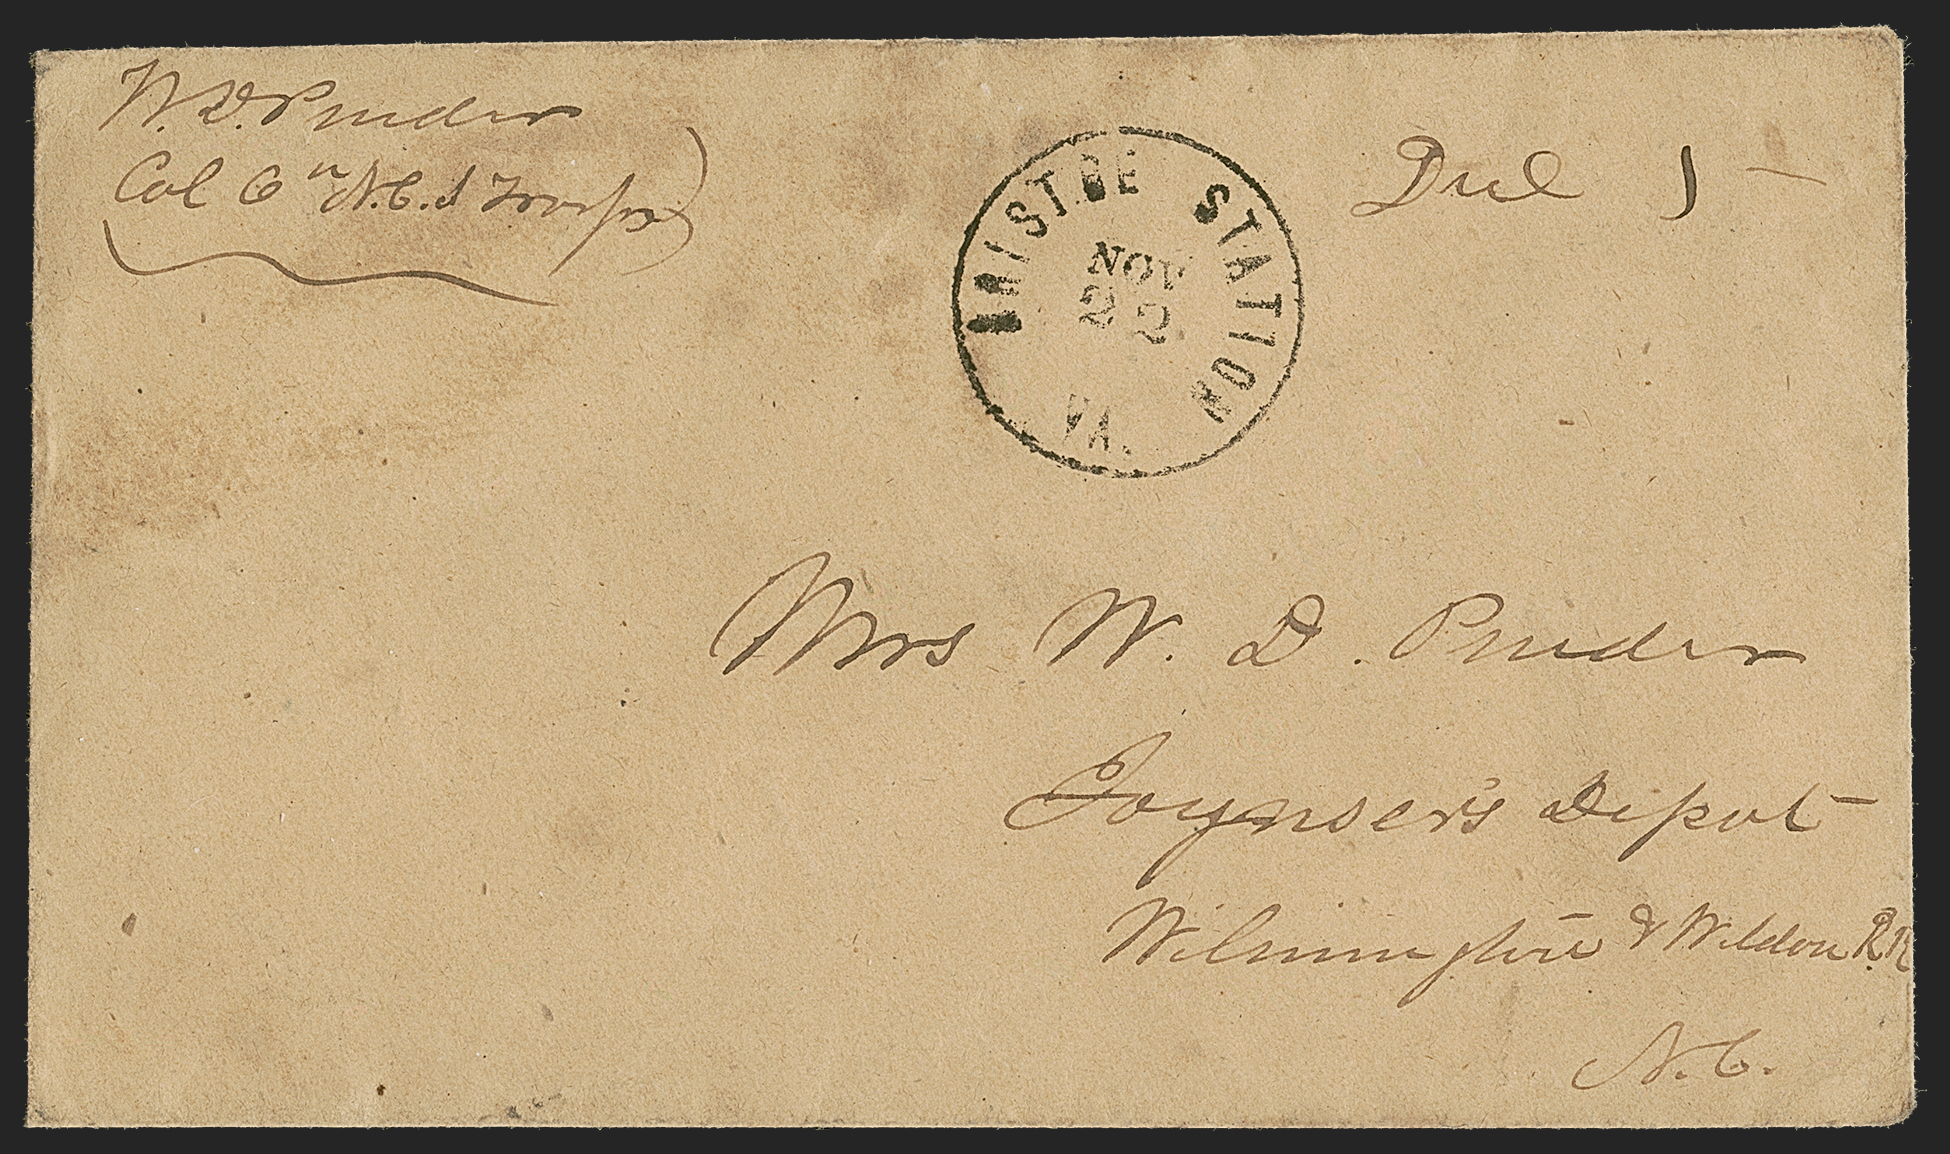 W. D. Pender
Col 6th N.C. S Troops
BRISTOE STATION
NOV
22
VA.
Due 5
Mrs W. D. Pender
Joyner's Depot
Wilmington & Weldon R.R
N.C.